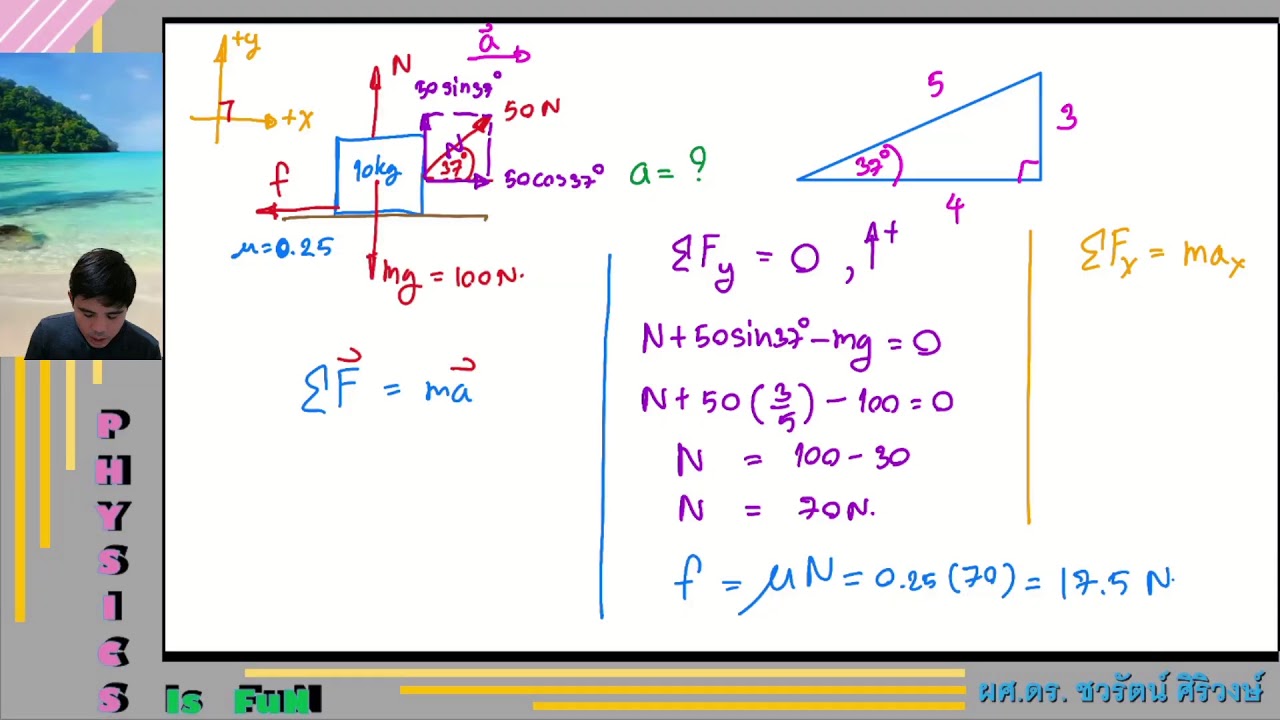 +y
+x
a
N
50sin37°
50N
37°
50cos37°
10kg
f
μ=0.25
mg = 100N.
a = ?
5
3
37°
4
ΣF = ma
ΣFy = 0, ↑+
N+50sin37°-mg = 0
N+50(3/5)-100=0
N = 100-30
N = 70N.
f = μN = 0.25(70) = 17.5 N.
ΣFx = max
PHYSICS
Is FuN
ผศ.ดร. ชวรัตน์ ศิริวงษ์